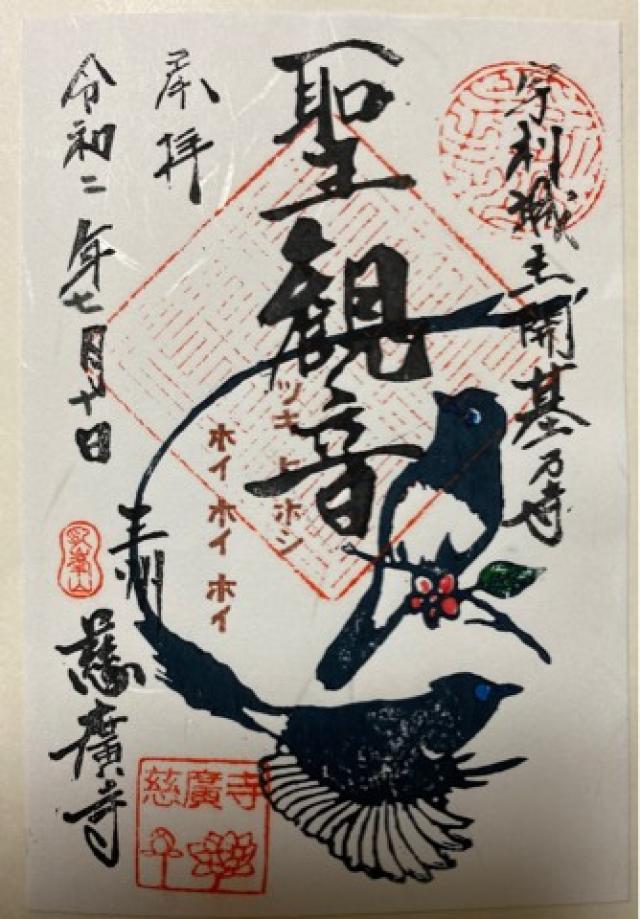 宇利城主開基乃寺
聖観音
ツキ ヒ ホシ
ホイ ホイ ホイ
奉拝
令和二年七月十日
三州
慈廣寺
慈廣寺